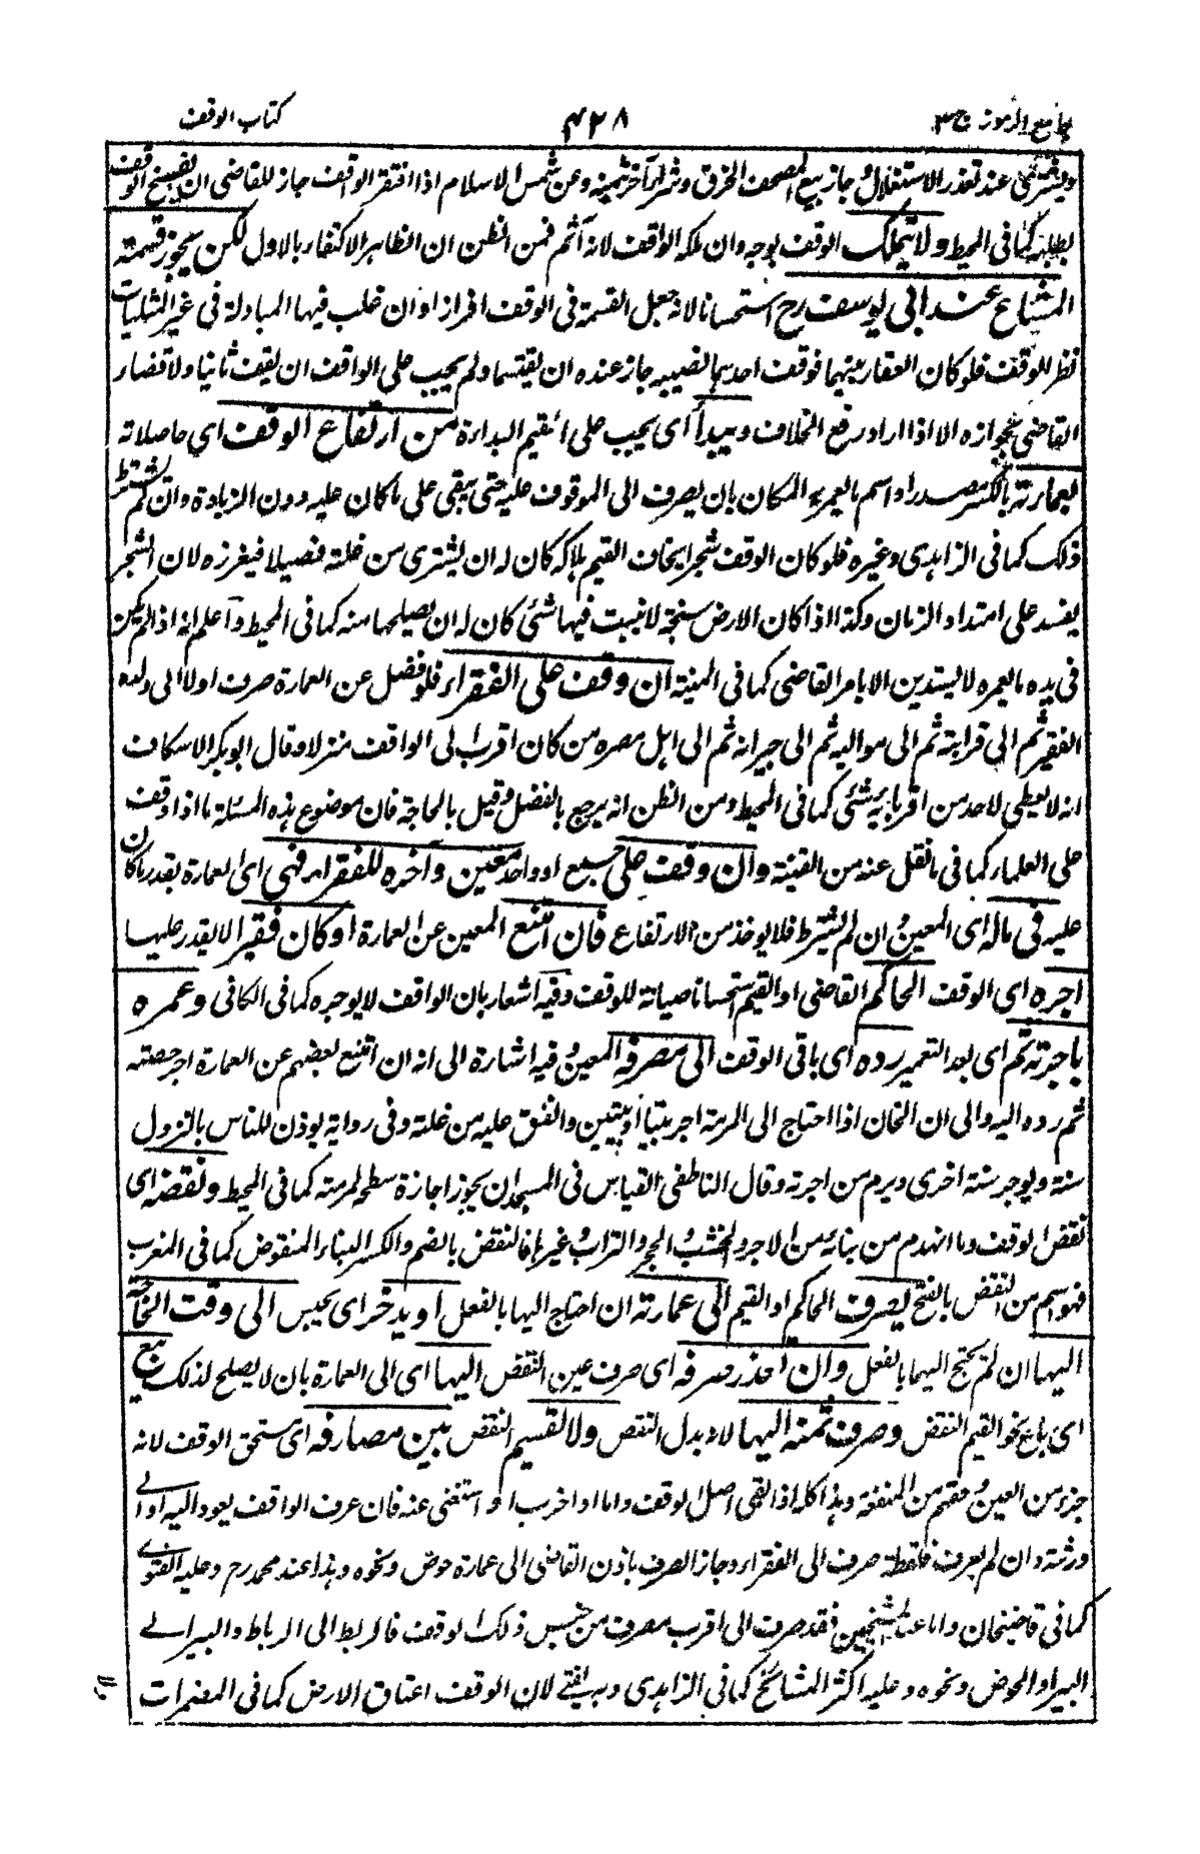 جامع الرموز ج ۳ ۴۲۸ كتاب الوقف
ويشترى عند تعذر الاستغلال و جاز بيع المصحف الخرق وشراء آخر بثمنه وعن شمس الاسلام اذا افتقر الواقف جاز للقاضى ان يفسخ الوقف
بطلبه كما فى المحيط ولا يتملك الوقف بوجه وان ملكه الواقف لانه آثم فمن الظن ان الظاهر الاكتفاء بالاول لكن يجوز قسمة
المشاع عند ابى يوسف رح استحسانا لانه جعل القسمة فى الوقف افرازا وان غلب فيها المبادلة فى غير المثليات
نظرا للوقف فلو كان العقار بينهما فوقف احدهما نصيبه جاز عنده ان يقتسما ولم يجب على الواقف ان يقف ثانيا ولا قضاء
القاضى بجوازه الا اذا اراد رفع الخلاف ويبدأ اى يجب على القيم البداءة من ارتفاع الوقف اى حاصلاته
بعمارته بالكسر مصدر او اسم ما يعمر به المكان بان يصرف الى الموقوف عليه حتى يبقى على ما كان عليه دون الزيادة وان لم يشترط
ذلك كما فى الزاهدى وغيره فلو كان الوقف شجرا يخاف القيم هلاكه كان له ان يشترى من غلته فصيلا فيغرزه لان الشجر
يفسد على امتداد الزمان وكذا اذا كان الارض سبخة لا ينبت فيها شئ كان له ان يصلحها منه كما فى المحيط و آعلم انه اذا لم يكن
فى يده ما يعمره لا يستدين الا بامر القاضى كما فى المنية ان وقف على الفقراء فلو فضل عن العمارة صرف اولا الى ولده
الفقير ثم الى قرابته ثم الى مواليه ثم الى جيرانه ثم الى اهل مصره من كان اقرب الى الواقف منزلا وقال ابو بكر الاسكاف
انه لا يعطى لاحد من اقربائه شئ كما فى المحيط ومن الظن انه يرجح بالفضل وقيل بالحاجة فان موضوع هذه المسئلة ما اذا وقف
على العلماء كما فى ما نقل عنه من القنية وان وقف على جميع او واحد معين وآخره للفقراء فهى اى العمارة بقدر ما كان
عليه فى ماله اى المعين و ان لم يشترط فلا يوخذ من الارتفاع فان امتنع المعين عن العمارة او كان فقيرا لا يقدر عليها
اجره اى الوقف الحاكم القاضى او القيم استحسانا صيانة للوقف وفيه اشعار بان الواقف لا يوجره كما فى الكافى وعمره
باجرته ثم اى بعد التعمير رده اى باقى الوقف الى مصرفه المعين و فيه اشارة الى انه ان امتنع بعضهم عن العمارة اجر حصته
ثم رده اليه والى ان الخان اذا احتاج الى المرمة اجر بيتا او بيتين وانفق عليه من غلته وفى رواية يوذن للناس بالنزول
سنة ويوجر سنة اخرى ويرم من اجرته وقال الناطفى القياس فى المسجد ان يجوز اجازة سطحه لمرمته كما فى المحيط ونقضه اى
نقض الوقف وما انهدم من بنائه من الاجر والخشب والحجر والتراب وغيرها فالنقض بالضم والكسر البناء المنقوض كما فى المغرب
فهو اسم من النقض بالفتح يصرف الحاكم او القيم الى عمارته ان احتاج اليها بالفعل او يدخر اى يحبس الى وقت الحاجة
اليها ان لم يحتج اليها بالفعل وان تعذر صرفه اى صرف عين النقض اليها اى الى العمارة بان لا يصلح لذلك بيع
اى باع نحو القيم النقض وصرف ثمنه اليها لانه بدل النقض ولا تقسيم النقض بين مصارفه اى مستحق الوقف لانه
جزء من العين و حقهم من المنفعة وهذا كله اذا بقى اصل الوقف واما اذا خرب او استغنى عنه فان عرف الواقف يعود اليه او الى
ورثته وان لم يعرف فلقطة صرف الى الفقراء وجاز الصرف باذن القاضى الى عمارة حوض ونحوه وهذا عند محمد رح وعليه الفتوى
كما فى قاضيخان واما عند الشيخين فقد صرف الى اقرب مصرف من جنس ذلك الوقف فالربط الى الرباط والبير الى
البير او الحوض ونحوه وعليه اكثر المشائخ كما فى الزاهدى وبه يفتى لان الوقف اعتاق الارض كما فى المضمرات